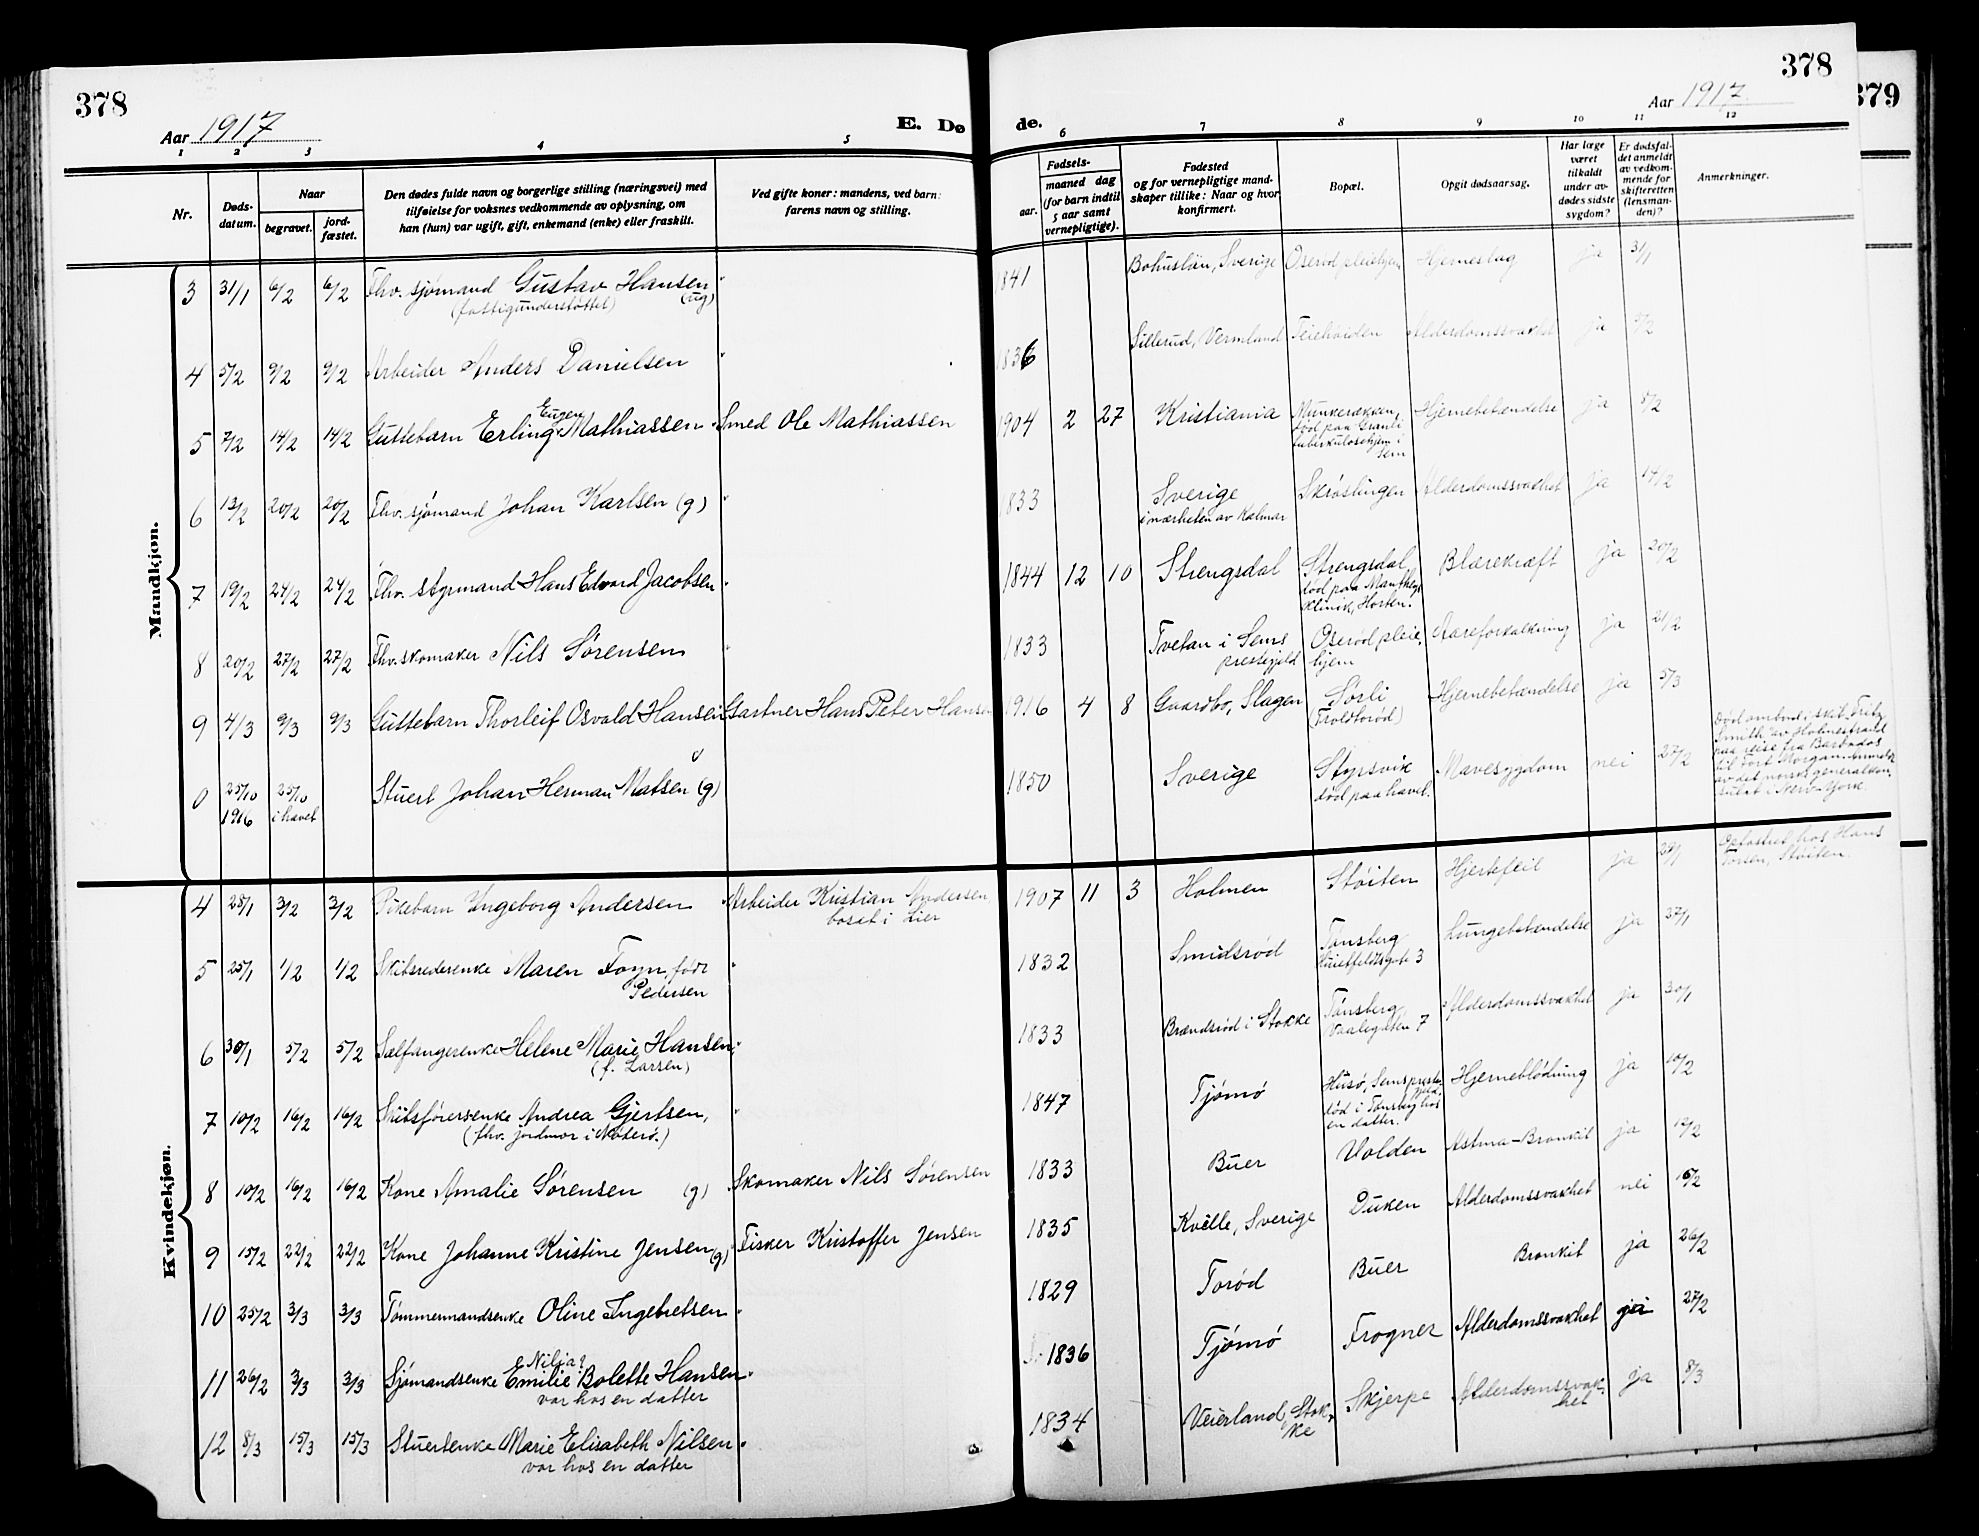 378
Aar 1917
E. Dø
de.
378
Aar 1917
379
1 2 3 4 5 6 7 8 9 10 11 12
Nr.
Døds-
datum.
Naar
begravet.
jord-
fæstet.
Den dødes fulde navn og borgerlige stilling (næringsvei) med
tilføielse for voksnes vedkommende av oplysning, om
han (hun) var ugift, gift, enkemand (enke) eller fraskilt.
Ved gifte koner: mandens, ved barn:
farens navn og stilling.
Fødsels-
aar.
maaned dag
(for barn indtil
5 aar samt
vernepligtige).
Fødested
og for vernepligtige mand-
skaper tillike: Naar og hvor
konfirmert.
Bopæl.
Opgit dødsaarsag.
Har læge
været
tilkaldt
under av-
dødes sidste
sygdom?
Er dødsfal-
det anmeldt
av vedkom-
mende for
skifteretten
(lensman-
den)?
Anmerkninger.
Mandkjøn.
3 31/1 6/2 6/2 Fhv. sjømand Gustav Hansen (ug) " 1841 Bohuslän, Sverige Oserød pleiehjem Hjerneslag ja 31/1
(fattigunderstøttet)
4 5/2 9/2 9/2 Arbeider Anders Danielsen " 1836 Sillerud, Vermland Teiehøiden Alderdomssvakhet ja 5/2
5 7/2 14/2 14/2 Guttebarn Erling Eugen Mathiassen Smed Ole Mathiassen 1904 2 27 Kristiania Munkerækken, Hjernebetændelse ja 8/2
død paa Granli
tuberkulosehjem i
Sem
6 13/2 20/2 20/2 Fhv. sjømand Johan Karlsen (g) " 1833 Sverige Skrøslingen Alderdomssvakhet ja 14/2
i nærheten av Kalmar
7 19/2 24/2 24/2 Fhv. styrmand Hans Edvard Jacobsen " 1844 12 10 Strengsdal Strengsdal, Blærekræft ja 20/2
død paa
klinik, Horten.
8 20/2 27/2 27/2 Fhv. skomaker Nils Sørensen " 1833 Tvetan i Sems Oserød pleie- Aareforkalkning ja 21/2
prestegjeld hjem
9 4/3 9/3 9/3 Guttebarn Thorleif Osvald Hansen Gartner Hans Peter Hansen 1916 4 8 Gaardbo, Slagen Sørli Hjernebetændelse ja 5/3
(Troldborød)
0 25/10 25/10 Stuert Johan Herman Matsen (g) " 1850 Sverige Styrsvik Mavesygdom nei 27/2
1916 i havet død paa havet.
Død ombord i skib "Fritz
Smith" av Holmestrand
paa reise fra Barbados
til Port Morgan. Anmeldt
av det norske generalkon-
sulat i New-York.
Kvindekjøn.
4 28/1 3/2 3/2 Pikebarn Ingeborg Andersen Arbeider Kristian Andersen 1907 11 3 Holmen Støiten Hjertefeil ja 29/1 Opfostret hos Hans
bosat i Lier Støiten.
5 25/1 1/2 1/2 Skibsrederenke Maren Foyn, født " 1832 Smidsrød Tønsberg Lungebetændelse ja 27/1
Pedersen 3
6 30/1 5/2 5/2 Sælfangerenke Helene Marie Hansen, " 1833 Brændsrød i Stokke Tønsberg, Alderdomssvakhet ja 30/1
(f. Larsen) 7
7 10/2 16/2 16/2 Skibsførersenke Andrea Gjertsen, " 1847 Tjømø Husø, Sems preste- Hjerneblødning ja 10/2
(fhv. jordmor i Nøterø.) gjeld,
død i Tønsberg hos
en datter.
8 10/2 16/2 16/2 Kone Amalie Sørensen (g) Skomaker Nils Sørensen 1833 Buer Volden Astma-Bronkit ja 12/2
9 15/2 22/2 22/2 Kone Johanne Kristine Jensen (g) Fisker Kristoffer Jensen 1835 Kville, Sverige Duken Alderdomssvakhet nei 16/2
10 25/2 3/3 3/3 Tømmermandsenke Oline Ingebretsen " 1829 Torød Buer Bronkit ja 26/2
11 26/2 3/3 3/3 Sjømandsenke Emilie Bolette Hansen " 1836 Tjømø Frogner Alderdomssvakhet 27/2
Nilia?
var hos en datter
12 8/3 15/3 15/3 Stuertenke Marie Elisabeth Nilsen " 1834 Veierland, Stok- Skjerpe Alderdomssvak- ja 8/3
var hos en datter ke het